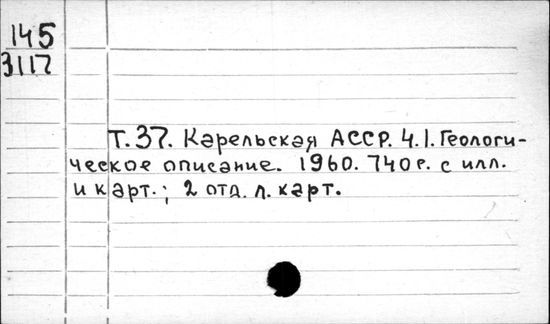 145
3117
Т. 37. Карельская АССР. Ч. 1. Геологи-
ческое описание. 1960. 740 с. с илл.
и карт.; 2 отд. л. карт.